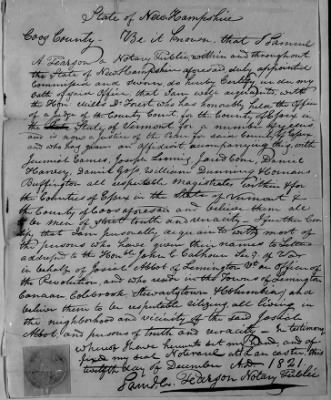 State of New Hampshire
Coos County - Be it Known, that I Samuel
A. Pearson a Notary Public within and throughout
the State of New Hampshire aforesaid duly appointed
Commissioned and sworn, do hereby Certify under my
oath of said Office that I am well acquainted with
the Hon. Mills D. Forest who has honorably held the Office
of a Judge of the County Court for the County of Essex in
the State of Vermont for a number of years
and is now a Justice of the Peace for said County of Essex
and who has given an affidavit accompanying this, with
Jeremiah Eames, Joseph Loomis, Jared Cone, Daniel
Harvey, Daniel Goss William Dunning
Buffington all respectable Magistrates within & for
the Counties of Essex in the State of Vermont &
the County of Coos aforesaid and believe them all
to be men of great truth and veracity - I further Cer
ify, that I am personally acquainted with most of
the persons who have given their names to Letters
addressed to the Honble John C. Calhoun Secy of War
in behalf of Josiel Abbot of Lemington Vt. an Officer of
the Revolution, and who reside in the Towns of Lemington
Canaan Colebrook Stewartstown & Columbia, and
believe them to be respectable all living in
the neighborhood and vicinity of the said
Abbot and persons of truth and veracity - In testimony
whereof I have hereunto set my Hand, and af
fixed my seal Notarial with
twelfth day of December A.D. 1821
Saml. A. Pearson Notary Public